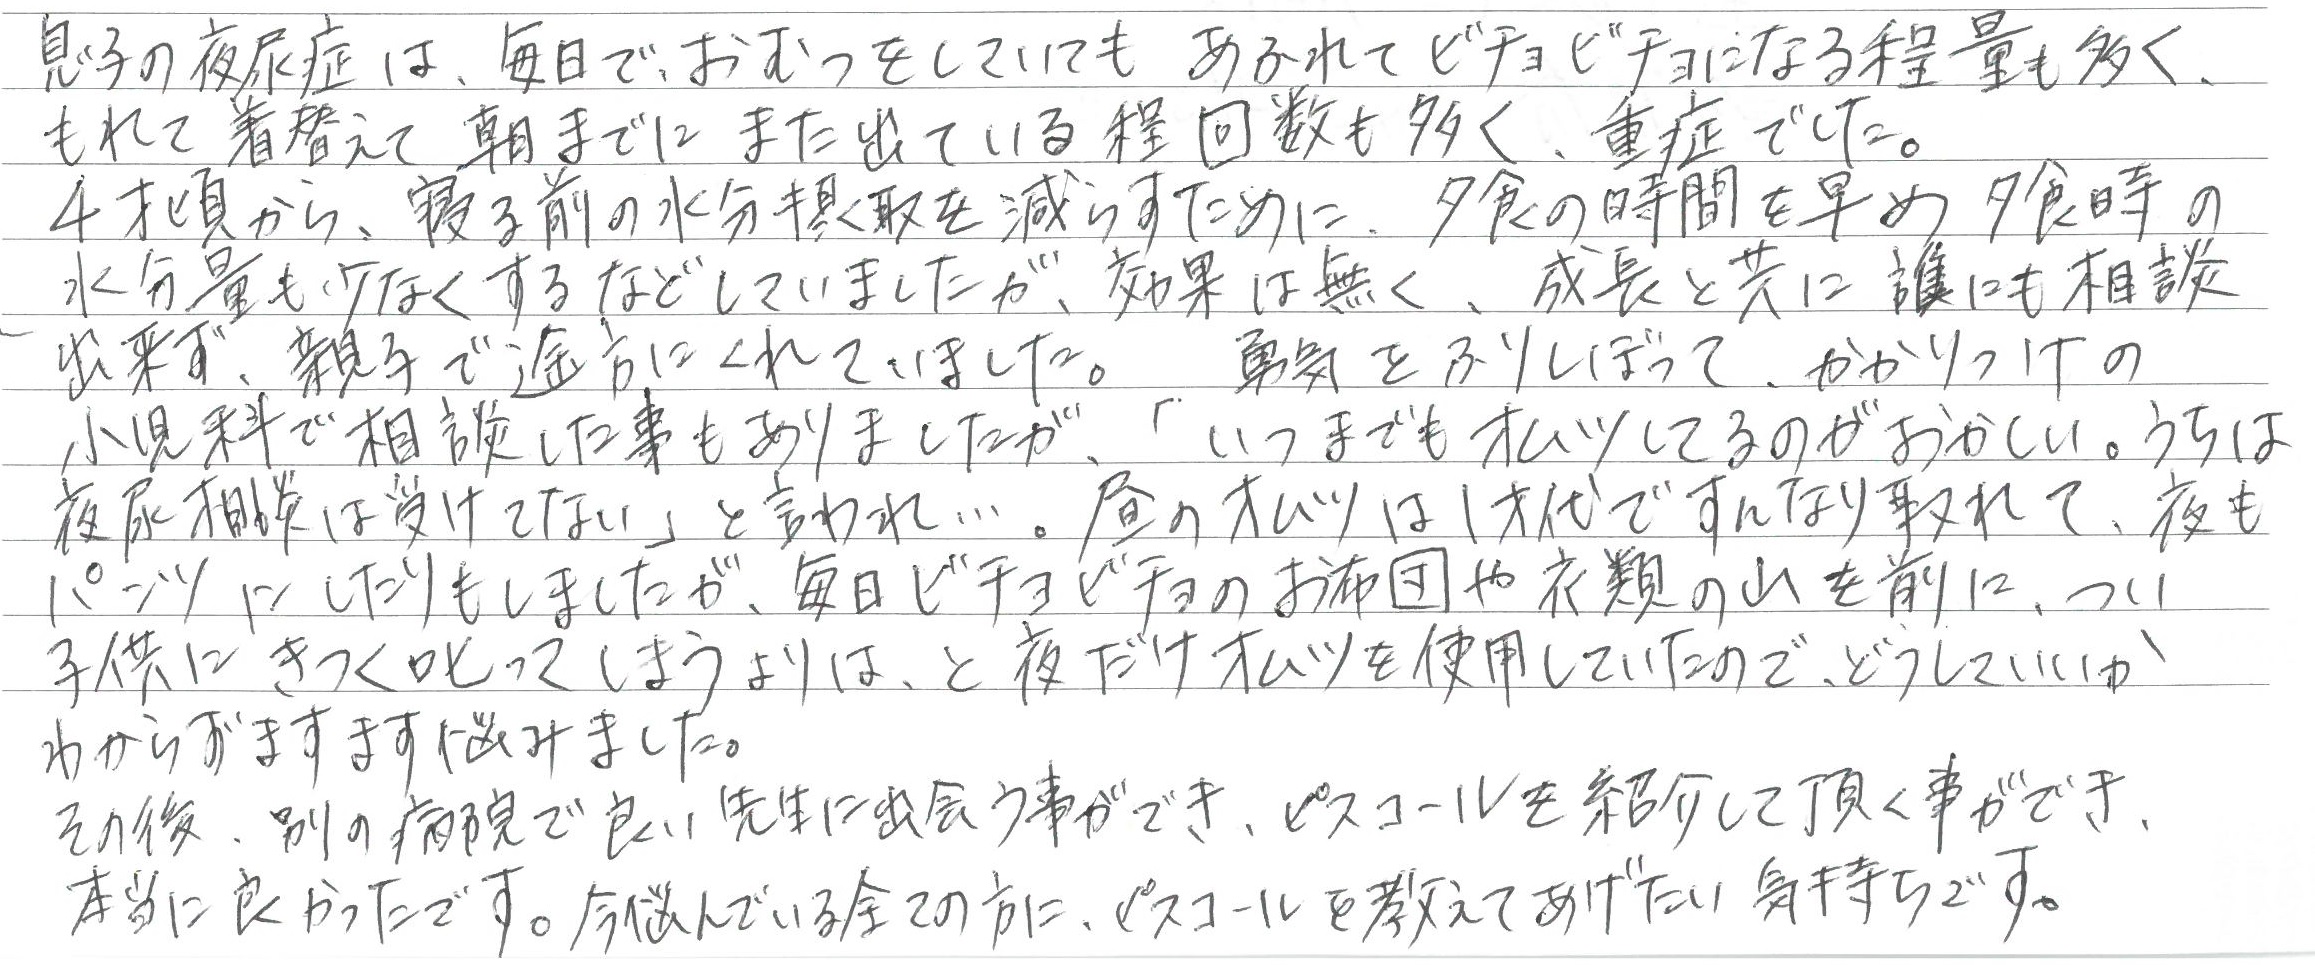 息子の夜尿症は、毎日で、おむつをしていても あふれてビチョビチョになる程量も多く、
もれて着替えて朝までに また出ている程回数も多く、重症でした。
4才頃から、寝る前の水分摂取を減らすために、夕食の時間を早め夕食時の
水分量も少なくするなどしていましたが、効果は無く、成長と共に誰にも相談
出来ず、親子で途方にくれていました。 勇気をふりしぼって、かかりつけの
小児科で相談した事もありましたが、「いつまでもオムツしてるのがおかしい。うちは
夜尿相談は受けてない」と言われ…。昼のオムツは1才代ですんなり取れて、夜も
パンツにしたりもしましたが、毎日ビチョビチョのお布団や衣類の山を前に、つい
子供にきつく叱ってしまうよりは、と夜だけオムツを使用していたので、どうしていいか
わからずますます悩みました。
その後、別の病院で良い先生に出会う事ができ、ピスコールを紹介して頂く事ができ、
本当に良かったです。今悩んでいる全ての方に、ピスコールを教えてあげたい気持ちです。